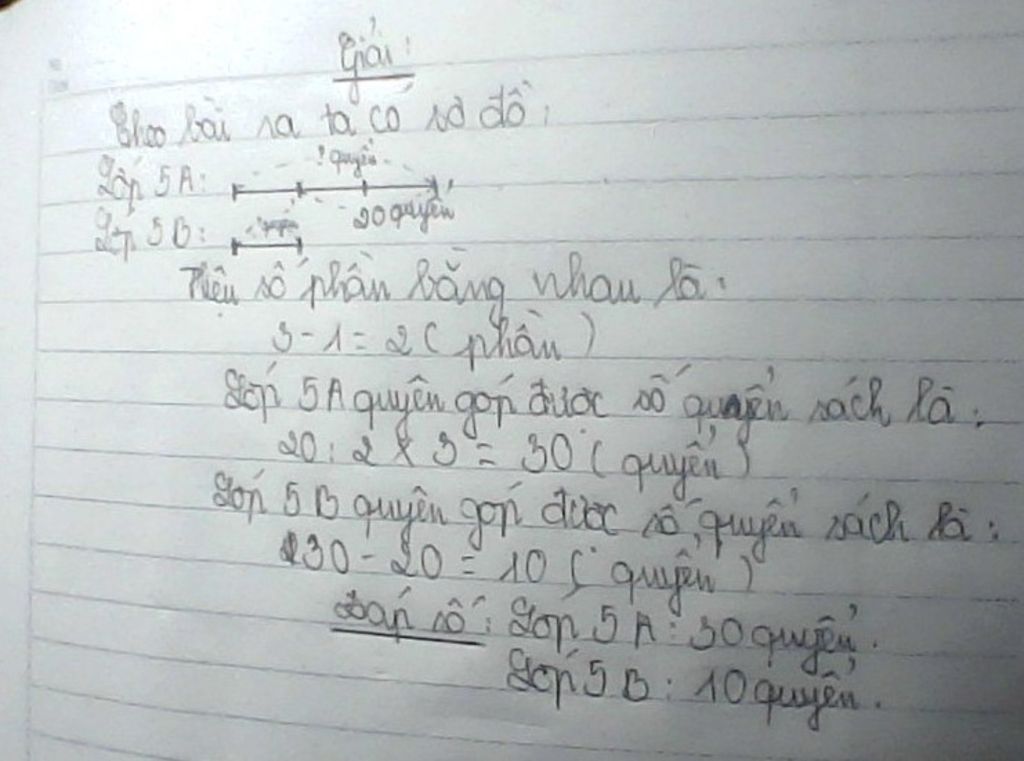 Giải:
Theo bài ra ta có sơ đồ:
? quyển
Lớp 5A:
20 quyển
Lớp 5B:
Hiệu số phần bằng nhau là:
3 - 1 = 2 ( phần )
Lớp 5A quyên góp được số quyển sách là:
20 : 2 x 3 = 30 ( quyển )
Lớp 5B quyên góp được số quyển sách là:
30 - 20 = 10 ( quyển )
Đáp số: Lớp 5A: 30 quyển.
Lớp 5B: 10 quyển.